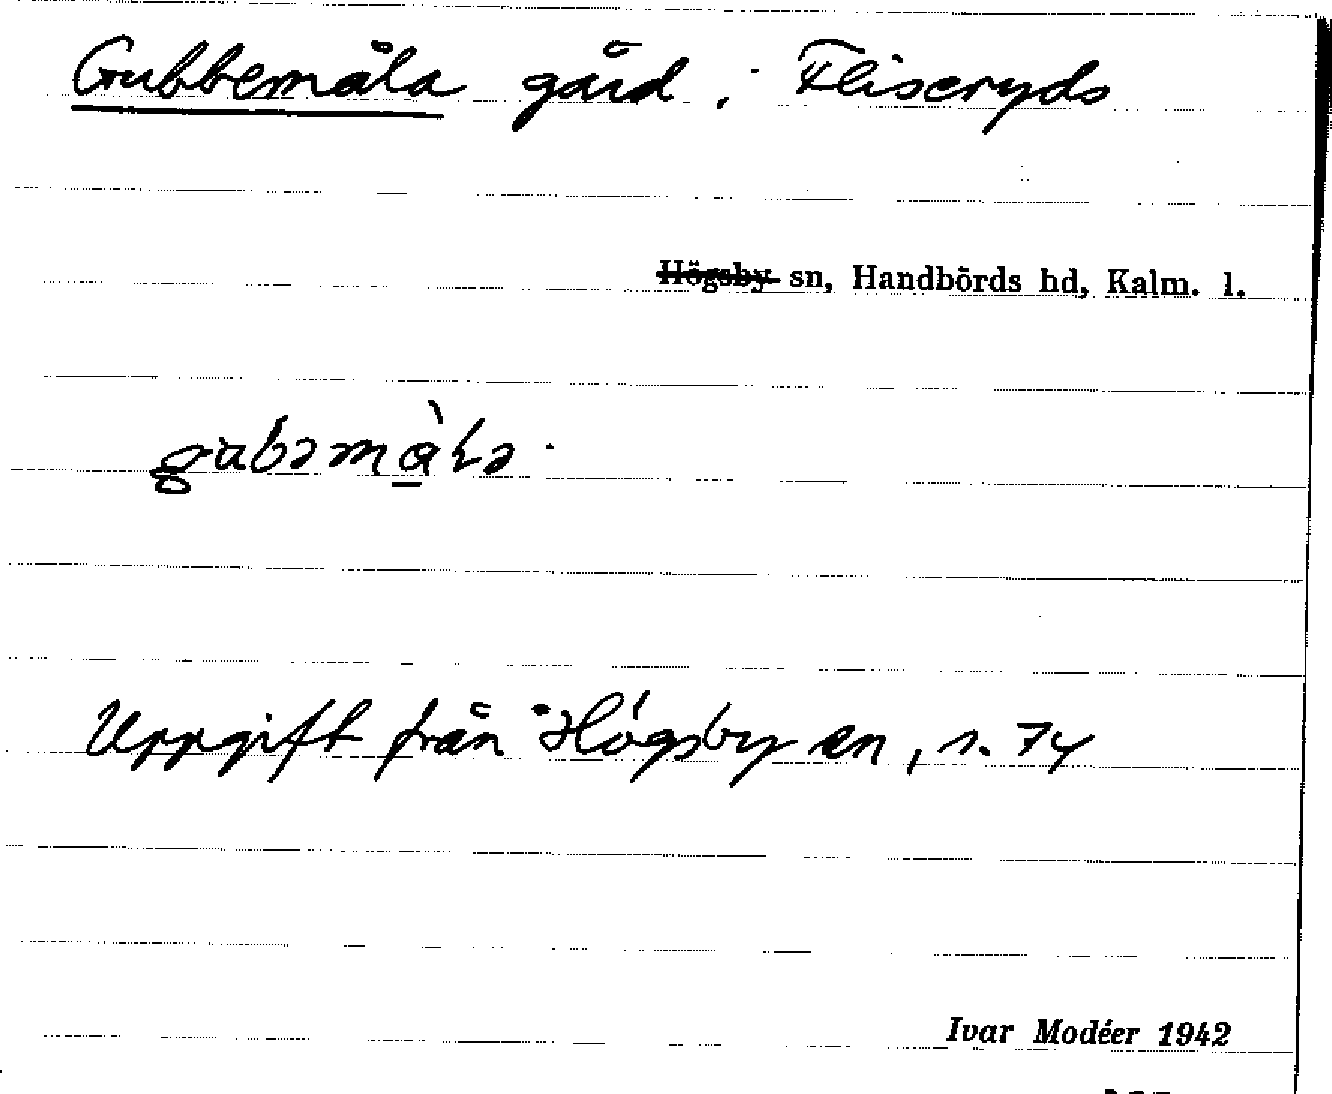 Gubbemåla gård, i Fliseryds
~~Högsby~~ sn, Handbörds hd, Kalm. l.
gubəmàɫə.
Uppgift från Högsby sn, s. 74
Ivar Modéer 1942